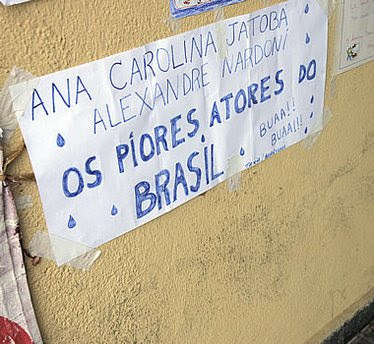 ANA CAROLINA JATOBÁ
ALEXANDRE NARDONI
OS PIORES ATORES DO
BRASIL
BUAA!!
BUAA!!!